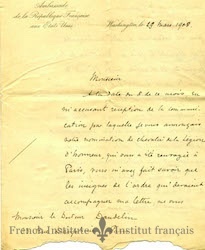 Ambassade
de la République Française
aux Etats-Unis
Washington, le 29 Mars 1908
Monsieur
A la date du 8 de ce mois, en
m'accusant réception de la communi-
cation par laquelle je vous annonçais
votre nomination de chevalier de la Légion
d'honneur, qui vous a été envoyée à
Paris, vous m'avez fait savoir que
les insignes de l'ordre qui devaient
accompagner ma lettre ne vous
Monsieur le Docteur
French Institute
www.